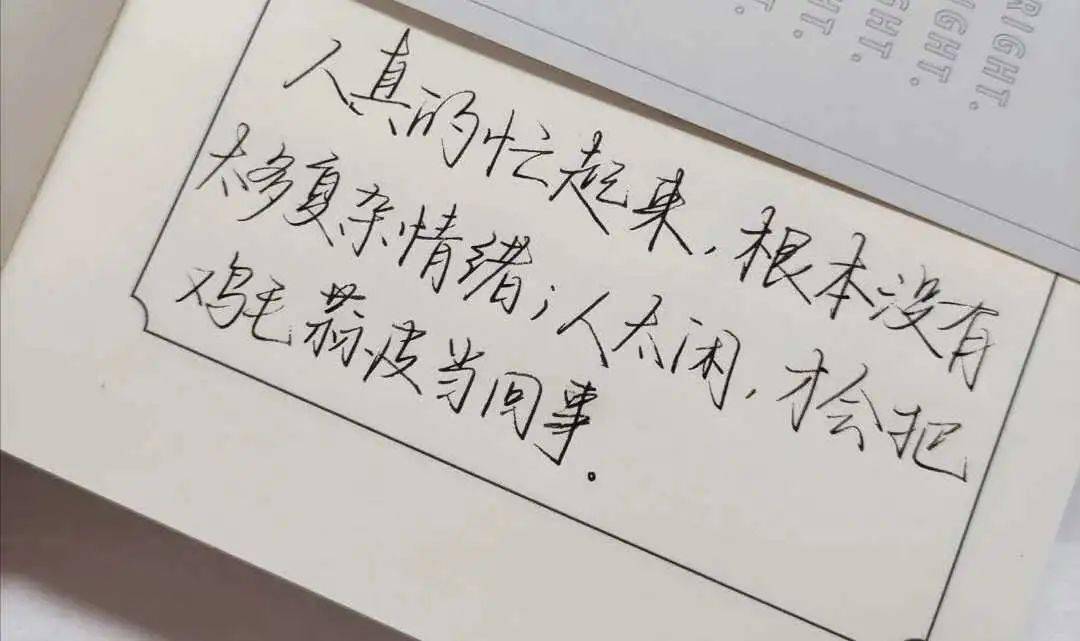 RIGHT.
IGHT.
GHT.
HT.
T.
人真的忙起来,根本没有
太多复杂情绪;人太闲,才会把
鸡毛蒜皮当回事。